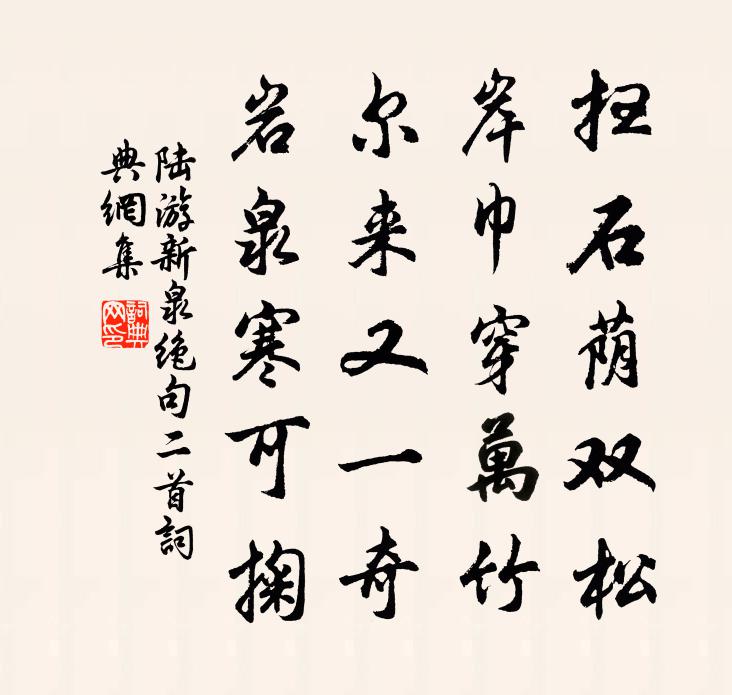 抂石荫双松
岸巾穿萬竹
尔来又一奇
岩泉寒可掬
陆游新泉绝句二首詞
典網集
詞典
网印